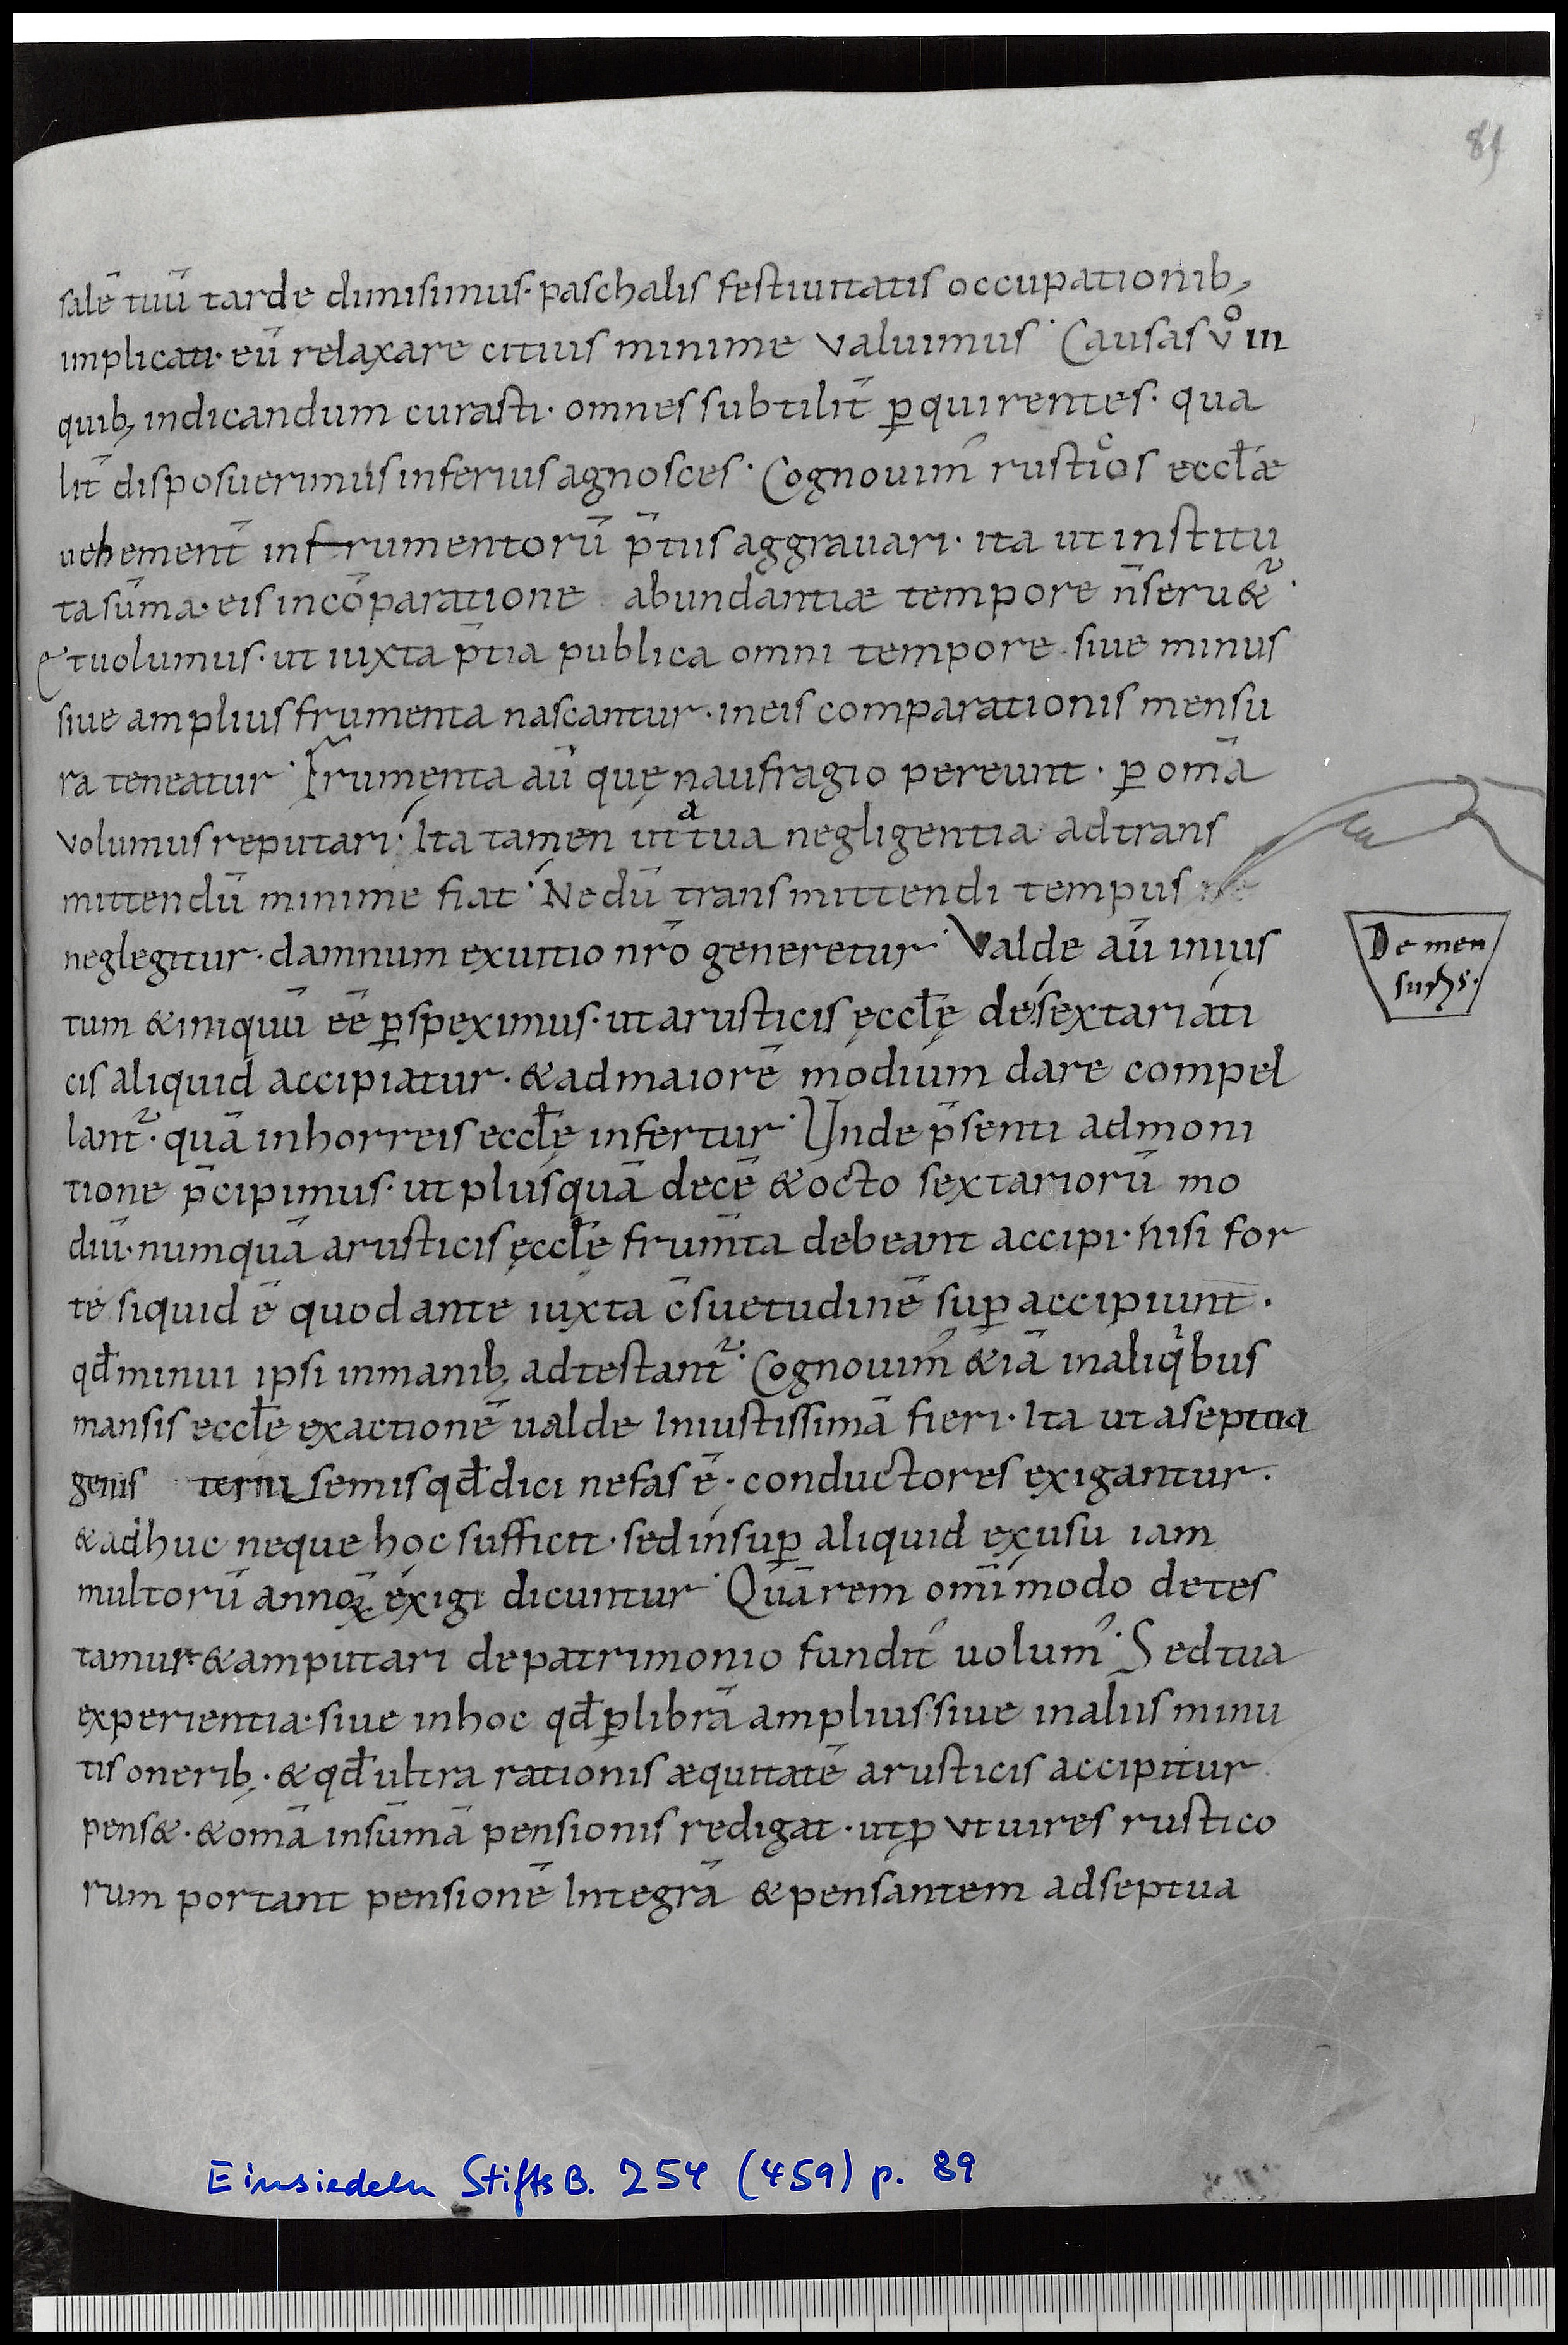 89
salē tuū tarde dimisimus· paschalis festiuitatis occupationib;
implicati· eū relaxare citius minime valuimus· Causas v̊ in
quib; indicandum curasti· omnes subtilit̄ ꝑquirentes· qua
lit̄ disposuerimus inferius agnosces· Cognouim᷒ rusticos eccl̄æ
uehement̄ in frumentorū p̄tiis aggrauari· ita ut institu
ta sūma· eis in cōparatione abundantiæ tempore n̄ seru&᷑·
Et uolumus· ut iuxta p̄tia publica omni tempore siue minus
siue amplius frumenta nascantur· in eis comparationis mensu
ra teneatur· Frumenta aū quę naufragio pereunt· ꝑ om̄a
volumus reputari· Ita tamen ut a tua negligentia ad trans
mittendū minime fiat· Ne dū transmittendi tempus
neglegitur· damnum ex uitio nr̄o generetur· Valde aū inius
tum & iniquū ēē ꝑspeximus· ut a rusticis ęccl̄ę de sextariati
cis aliquid accipiatur· & ad maiorē modium dare compel
lant᷑· quā in horreis eccl̄ę infertur· Unde p̄senti admoni
tione p̄cipimus· ut plus quā decē & octo sextariorū mo
diū· numquā a rusticis ęccl̄ę frum̄ta debeant accipi· nisi for
te siquid ē quod ante iuxta c̄suetudinē suꝑ accipiunt·
qd̄ minui ipsi in manib; adtestant᷑· Cognouim᷒ & iā in aliqⁱbus
mansis eccl̄e exactionē ualde Iniustissimā fieri· Ita ut a septua
genis terni semis qd̄ dici nefas ē· conductores exigantur·
& adhuc neque hoc sufficit· sed insuꝑ aliquid ex usu iam
multorū annoꝝ exigi dicuntur· Quā rem om̄imodo detes
tamur & amputari de patrimonio fundit᷒ uolum᷒· Sed tua
experientia· siue in hoc qd̄ ꝑ librā amplius· siue in aliis minu
tis onerib;· & qd̄ ultra rationis æquitatē a rusticis accipitur
pens&· & om̄a in sūmā pensionis redigat· ut ꝓut uires rustico
rum portant pensionē Integrā & pensantem ad septua
De men
suris·
Einsiedeln StiftsB. 254 (459) p. 89